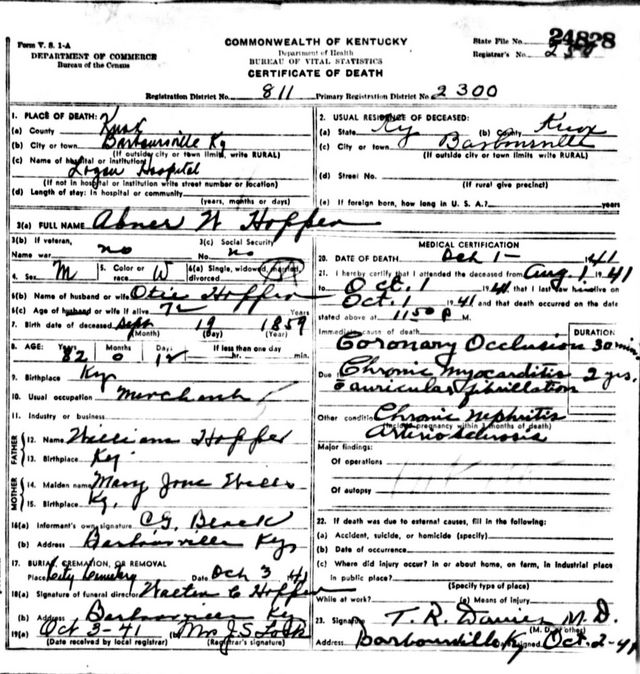 Form V. S. 1-A
DEPARTMENT OF COMMERCE
Bureau of the Census
COMMONWEALTH OF KENTUCKY
Department of Health
BUREAU OF VITAL STATISTICS
CERTIFICATE OF DEATH
State File No. 24828
Registrar's No.
Registration District No. 811 Primary Registration District No. 2300
1. PLACE OF DEATH:
(a) County Knox
(b) City or town Barbourville Ky
(If outside city or town limits, write RURAL)
(c) Name of hospital or institution:
Logan Hospital
(If not in hospital or institution write street number or location)
(d) Length of stay: In hospital or community
(years, months or days)
2. USUAL RESIDENCE OF DECEASED:
(a) State Ky (b) County Knox
(c) City or town Barbourville
(If outside city or town limits write RURAL)
(d) Street No.
(If rural give precinct)
(e) If foreign born, how long in U. S. A.? years
3(a) FULL NAME Abner W Hopper
3(b) If veteran,
Name war no
3(c) Social Security
No. no
4. Sex M
5. Color or
race W
6(a) Single, widowed, married,
divorced
6(b) Name of husband or wife Otie Hopper
6(c) Age of husband or wife if alive 72 Years
7. Birth date of deceased Sept 19 1859
(Month) (Day) (Year)
8. AGE: Years Months Days If less than one day
82 0 12 hr. min.
9. Birthplace Ky
10. Usual occupation Merchant
11. Industry or business
FATHER
12. Name William Hopper
13. Birthplace Ky
MOTHER
14. Maiden name Mary Jane
15. Birthplace Ky.
16(a) Informent's own signature C.G. Black
(b) Address Barbourville Ky
17. BURIAL, CREMATION, OR REMOVAL
Place City Cemetery Date Oct 3 41
18(a) Signature of funeral director Walter C Hopper
(b) Address Barbourville Ky
19(a) Oct 3-41 (b) Mrs J.S. Lock
(Date received by local registrar) (Registrar's signature)
MEDICAL CERTIFICATION
20. DATE OF DEATH Oct 1- 1941
21. I hereby certify that I attended the deceased from Aug. 1 1941
to Oct. 1 1941 that I last saw alive on
Oct. 1 1941 and that death occurred on the date
stated above at 1150 P M.
DURATION
Immediate cause of death
Coronary Occlusion 30 min
Due Chronic Myocarditis 2 yrs.
auricular fibrillation
Other condition Chronic Nephritis
(Include pregnancy within 3 months of death)
Arteriosclerosis
Major findings:
Of operations
Of autopsy
22. If death was due to external causes, fill in the following:
(a) Accident, suicide, or homicide (specify)
(b) Date of occurrence
(c) Where did injury occur? in or about home, on farm, in industrial place
in public place?
(Specify type of place)
While at work? (e) Means of injury
23. Signature T. R. Davies M. D.
(M. D. or other)
Address Barbourville Ky signed Oct. 2-41